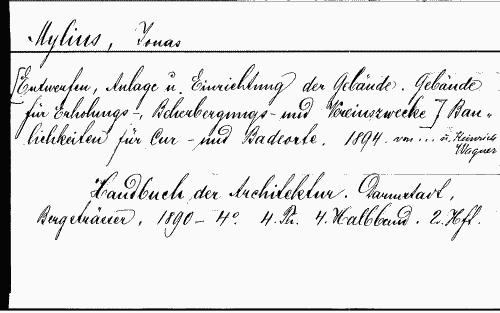 Mylius, Jonas
[Entwerfen, Anlage u. Einrichtung der Gebäude. Gebäude
für Erholungs-, Beherbergungs- und Vereinszwecke] Bau-
lichkeiten für Cur- und Badeorte. 1894. von ... u. Heinrich
Wagner
Handbuch der Architektur. Darmstadt,
Bergsträsser. 1890- 4°. 4. Th. 4. Halbband. 2. Hft.